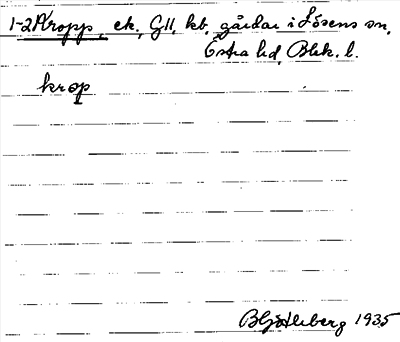 1-2 Kropp, ek, GII, kb, gårdar i Lösens sn,
Östra hd, Blek. l.
krop
B Götleberg 1935